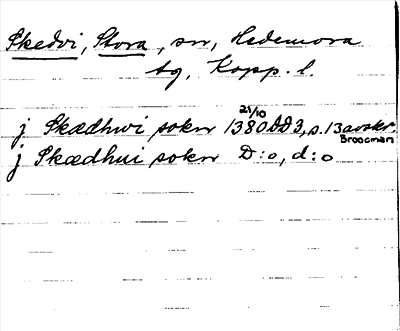 Skedvi, Stora, sn, Hedemora
tg, Kopp. l.
21/10
j Skædhwi sokn 1380 DD 3, s. 13 avskr.
Broocman
j Skædhui sokn D:o, d:o